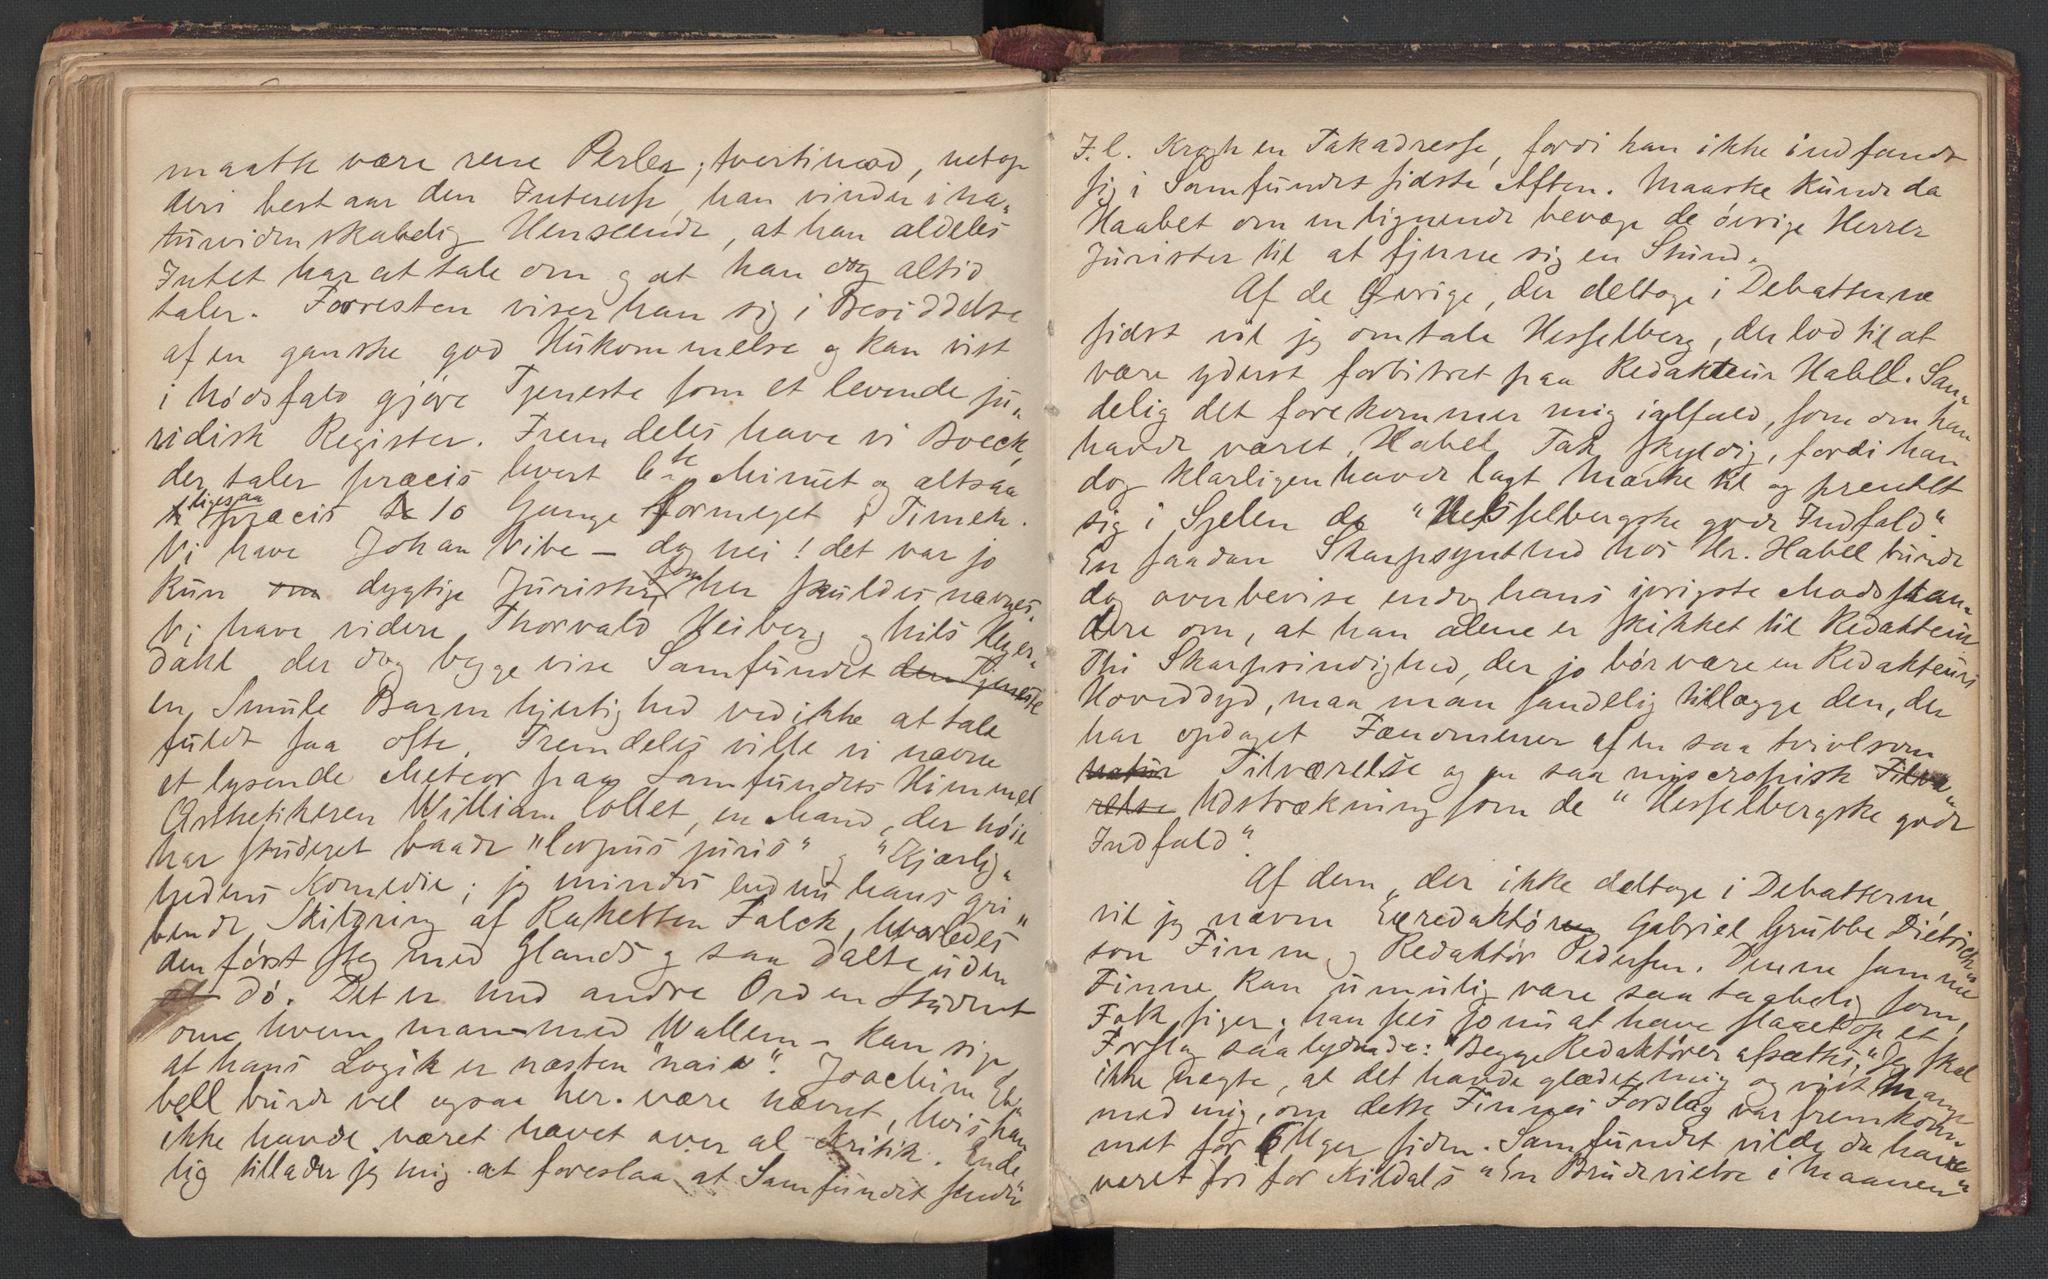 maatte være rene Perler; tvertimod, netop
deri bestaar den Interesse, han vinder i na-
turvidenskabelig Henseende, at han aldeles
Intet har at tale om og at han dog altid
taler. Forresten viser han sig i Besiddelse
af en ganske god Hukommelse og kan vist
i Nødsfald gjøre Tjeneste som et levende ju-
ridisk Register. Fremdeles have vi Boeck,
der taler præcis hvert 6te Minut og altsaa
ligesaa præcis 10 Gange formeget i Timen.
Vi have Johan Vibe – dog nei! det var jo
kun om dygtige Jurister, som her skuldes nævnes.
Vi have videre Thorvald Heiberg og Nils Heyer-
dahl der dog begge vise Samfundet den Tjeneste
en Smule Barmhjertighed ved ikke at tale
fuldt saa ofte. Fremdeles ville vi nævne
et lysende Meteor paa Samfundets Himmel
Æsthetikeren William Collet, en Mand, der nøie
har studeret baade "Corpus juris" og "Kjærlig-
hedens Komedie; jeg mindes endnu hans gri-
bende Skildring af Raketten Falck, hvorledes
den først steg med Glands og saa dalte uden
at dö. Det er med andre Ord en Student
om hvem man – med Wallem – kan sige
at hans Logik er næsten "naiv". Joachim Eb-
bell burde vel ogsaa her være nævnt, hvis han
ikke havde været hævet over al Kritik. Ende-
lig tillader jeg mig at foreslaa at Samfundet sender
J.C. Krogh en Takadresse, fordi han ikke indfandt
sig i Samfundet sidste Aften. Maaske kunde da
Haabet om en lignende bevæge de øvrige Herrer
Jurister til at fjerne sig en Stund.
Af de Øvrige, der deltoge i Debatterne
sidst vil jeg omtale Hesselberg, der lod til at
være yderst forbitret paa Redakteur Habel. San-
delig det forekommer mig ialfald, som om han
havde været Habel Tak skyldig, fordi han
dog klarligen havde lagt Mærke til og prentet
sig i Sjelen de "Hesselbergske gode Indfald"
En saadan Skarpsynthed hos Hr. Habel burde
dog overbevise endog hans ivrigste Modstan-
dere om, at han alene er skikket til Redakteur
Thi Skarpsindighed, der jo bör være en Redakteurs
Hoveddyd, maa man sandelig tillægge den, der
har opdaget Fænomener af en saa tvivlsom
natur Tilværelse og en saa microskopisk Tilvæ-
relse Udstrækning som de "Hesselbergske gode
Indfald".
Af dem, der ikke deltoge i Debatterne,
vil jeg nævne Exredaktør Gabriel Grubbe Dietrich-
son Finne og Redaktør Pedersen. Denne samme
Finne kan umulig være saa taabelig som
Folk siger; han sees jo nu at have slaaet op et
Forslag saalydende: "Begge Redaktører afsættes." Jeg skal
ikke nægte, at det havde glædet mig og vist Mange
med mig, om dette Finnes Forslag var fremkom-
met for 6 Uger siden. Samfundet vilde da have
været fri for Kildals "En Brudevielse i Maanen"